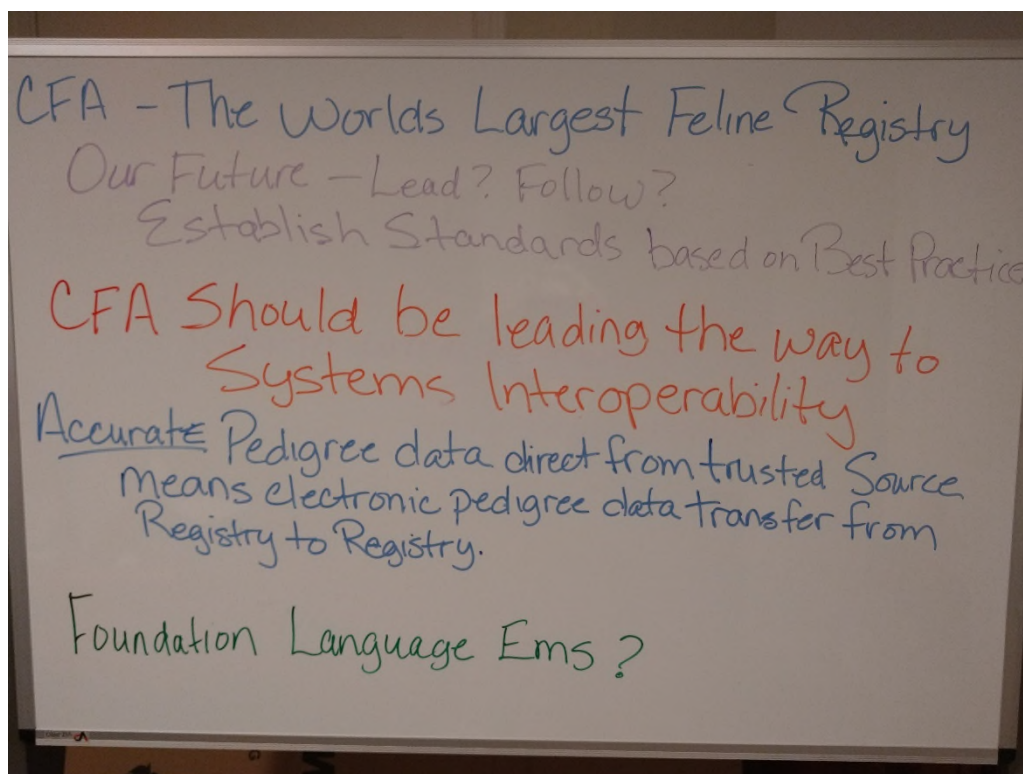 CFA - The Worlds Largest Feline Registry
Our Future - Lead? Follow?
Establish Standards based on Best Practice
CFA Should be leading the way to
Systems Interoperability
Accurate Pedigree data direct from trusted Source
means electronic pedigree data transfer from
Registry to Registry.
Foundation Language Ems?